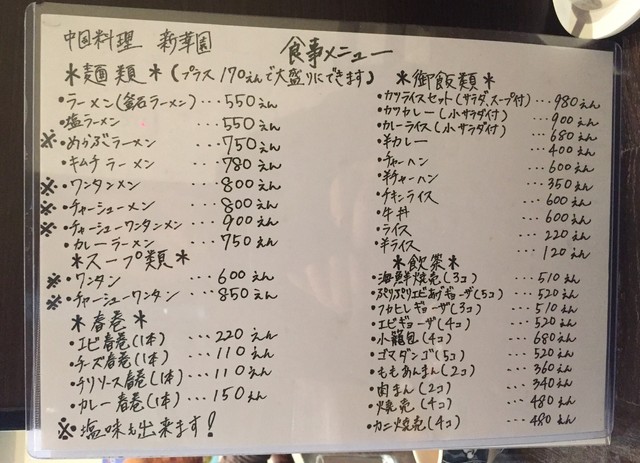 中国料理 新華園
食事メニュー
＊麺類＊(プラス170えんで大盛りにできます)
・ラーメン(釜石ラーメン)…550えん
・塩ラーメン …550えん
※・めかぶラーメン …750えん
・キムチラーメン …780えん
※・ワンタンメン …800えん
※・チャーシューメン …800えん
※・チャーシューワンタンメン …900えん
・カレーラーメン …750えん
＊スープ類＊
※・ワンタン …600えん
※・チャーシューワンタン …850えん
＊春巻＊
・エビ春巻(1本) …220えん
・チーズ春巻(1本) …110えん
・チリソース春巻(1本) …110えん
・カレー春巻(1本) …150えん
※・塩味も出来ます!
＊御飯類＊
・カツライスセット(サラダ、スープ付)…980えん
・カツカレー(小サラダ付) …900えん
・カレーライス(小サラダ付) …680えん
・半カレー …400えん
・チャーハン …600えん
・半チャーハン …350えん
・チキンライス …600えん
・牛丼 …600えん
・ライス …220えん
・半ライス …120えん
＊飲茶＊
・海鮮焼売(3コ) …510えん
・ぷりぷりエビあげギョーザ(5コ) …520えん
・フカヒレギョーザ(3コ) …510えん
・エビギョーザ(4コ) …520えん
・小籠包(4コ) …680えん
・ゴマダンゴ(5コ) …520えん
・ももあんまん(2コ) …360えん
・肉まん(2コ) …340えん
・焼売(4コ) …480えん
・カニ焼売(4コ) …480えん